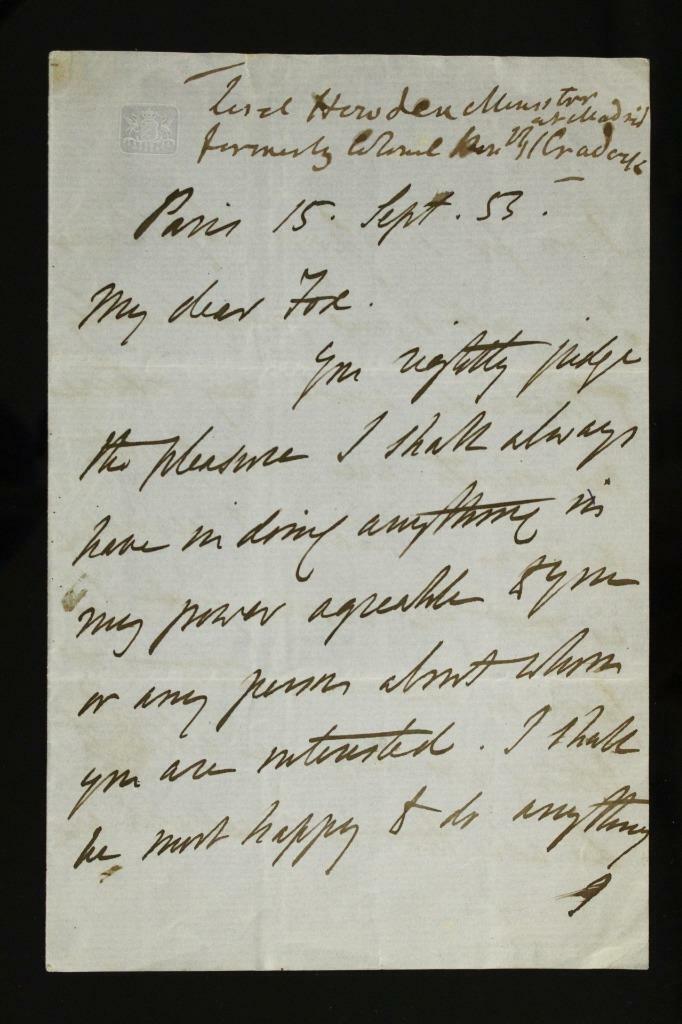 Howden Minister
at Madrid
formerly Colonel Cradock
Paris 15. Sept. 53.
My dear Fox.
You rightly judge
the pleasure I shall always
have in doing anything in
my power agreable to you
or any person about whom
you are interested. I shall
be most happy to do anything
I